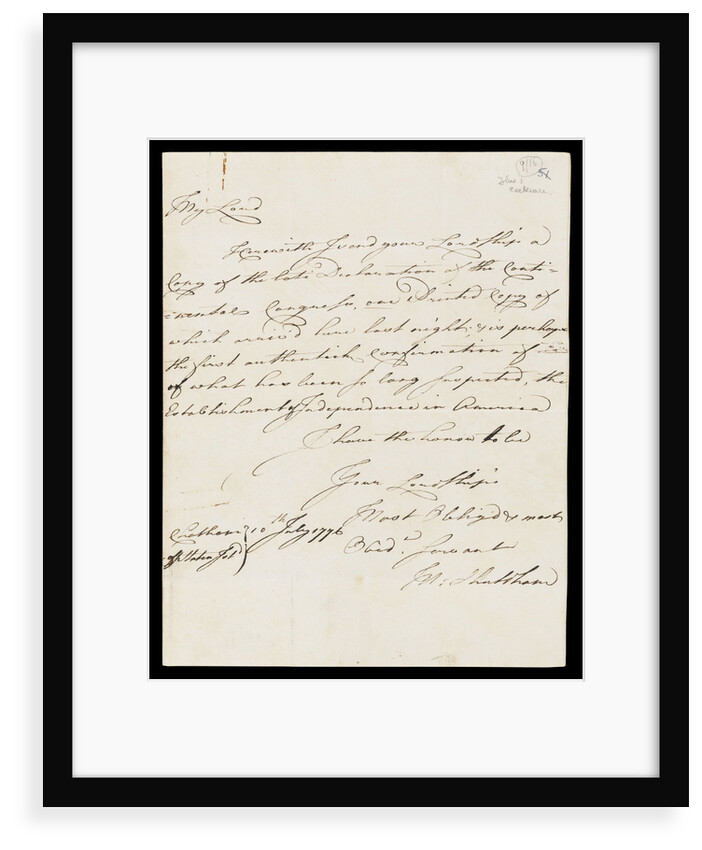 9/16
51
My Lord
Herewith I send your Lordship a
Copy of the late Declaration of the Conti=
=nental Congress, one Printed Copy of
which arriv'd here last night; & is perhaps
the first authentick Confirmation of
of what has been so long suspected, the
Establishment of Independence in America
I have the honor to be
Your Lordship's
Most Oblig'd & most
Obed.t Servant
M: Shuldham
Chatham } 10th July 1776
off Staten Isl.d